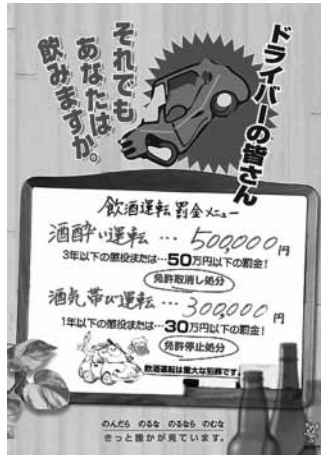 ドライバーの皆さん
それでも
あなたは
飲みますか。
飲酒運転 罰金メニュー
酒酔い運転…500,000円
3年以下の懲役または…50万円以下の罰金!
免許取消し処分
酒気帯び運転…300,000円
1年以下の懲役または…30万円以下の罰金!
免許停止処分
飲酒運転は重大な犯罪です。
のんだら のるな のるなら のむな
きっと誰かが見ています。